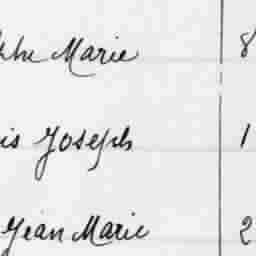 phe Marie 8
is Joseph 1
Jean Marie 2